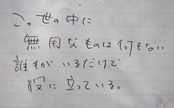 この世の中に
無用なものは何もない
誰もがいるだけで
役に立っている。